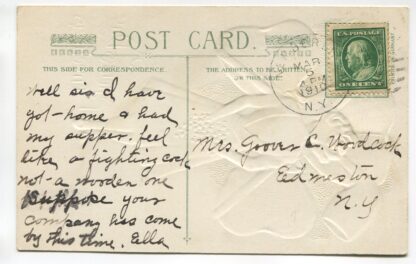 POST CARD.
THIS SIDE FOR CORRESPONDENCE.
THE ADDRESS
ON THIS SIDE.
MAR
5
PM
1910
N.Y.
U.S. POSTAGE
ONE CENT
Well sis I have
got home & had
my supper. feel
like a fighting cock
not a wooden one
Suppose your
company has come
by this time. Ella
Mrs. Grover C. Woodcock
Edmeston
N.Y